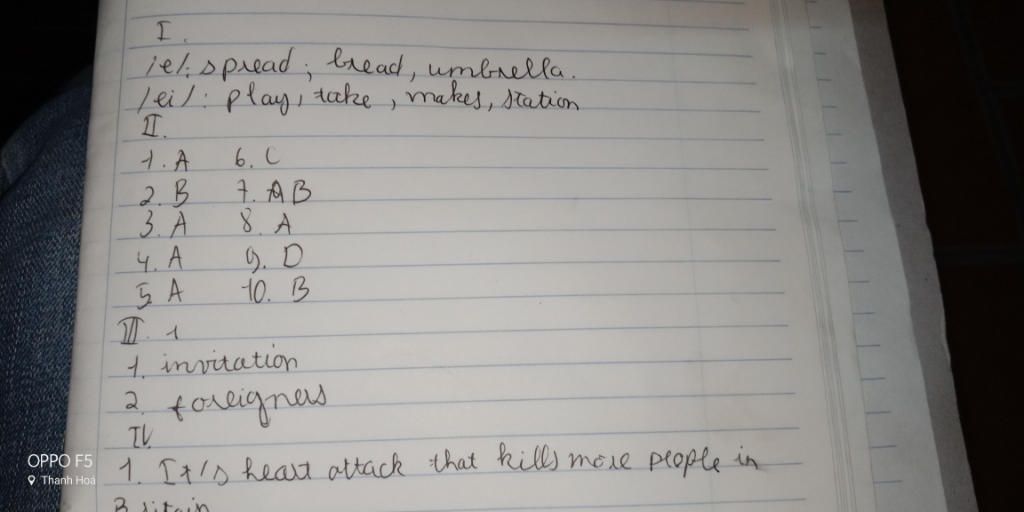 I.
/e/: spread; bread, umbrella.
/ei/: play, take, makes, station
II.
1. A 6. C
2. B 7. B
3. A 8. A
4. A 9. D
5. A 10. B
III. 1
1. invitation
2. foreigners
IV.
1. It's heart attack that kills more people in
Britain
OPPO F5
Thanh Hoá